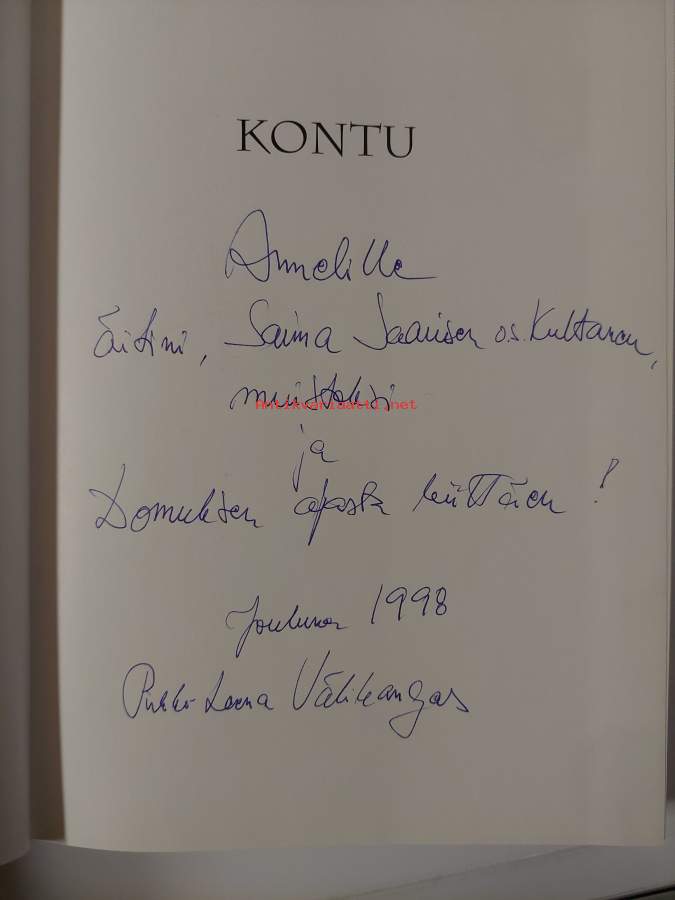 KONTU
Annelille
Äitini, Saima Saarisen o.s. Kultanen,
muistoksi
Antikvariaatti.net
ja
Domuksen avusta kiittäen!
Jouluna 1998
Pirkko-Leena Välikangas